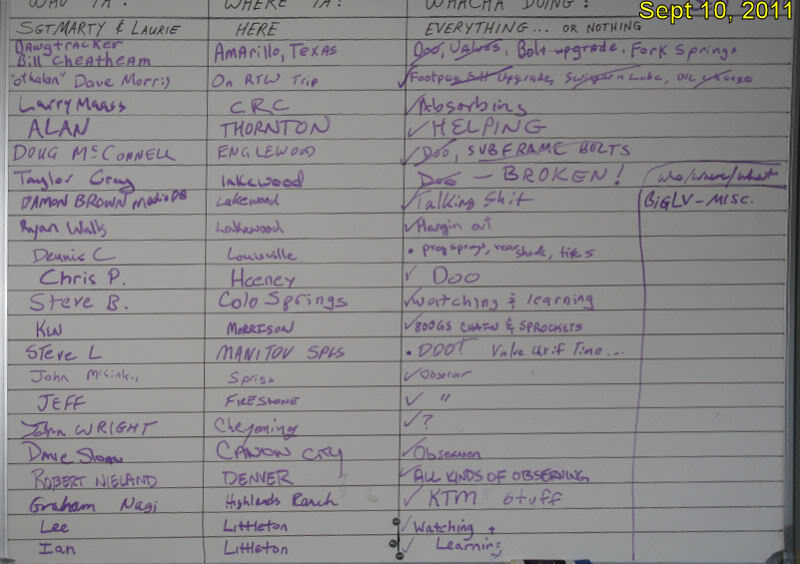 Sept 10, 2011
WHO YA? WHERE YA? WHATCHA DOING?
SGT MARTY & LAURIE HERE EVERYTHING... OR NOTHING
Dawgtracker
Bill Cheatheam Amarillo, Texas Doo, Valves, Bolt upgrade, Fork Springs
"othalan" Dave Morris On RTW Trip ✓ Upgrade, Lube,
Larry Maass CRC ✓Absorbing
ALAN THORNTON ✓HELPING
DOUG McCONNELL ENGLEWOOD ✓Doo, SUBFRAME BOLTS
Taylor Gray Lakewood Doo - BROKEN! who/where/what
DAMON BROWN Lakewood ✓Talking Shit BiGLV - MISC.
Ryan Walls Lakewood ✓Hangin out
Dennis C Louisville • prog springs, rear shock,
Chris P. Heeney ✓ Doo
Steve B. Colo Springs ✓Watching & learning
Ken MORRISON ✓800GS CHAIN & SPROCKETS
Steve L MANITOU SPGS • DOO! Valve Time...
John Spring ✓Observer
JEFF FIRESTONE ✓ "
John WRIGHT Cheyanning ✓?
Dave Sloan CANON CITY ✓Observer
ROBERT NIELAND DENVER ✓ALL KINDS OF OBSERVING
Graham Nagi Highlands Ranch ✓ KTM Stuff
Lee Littleton ✓Watching +
Ian Littleton ✓ Learning